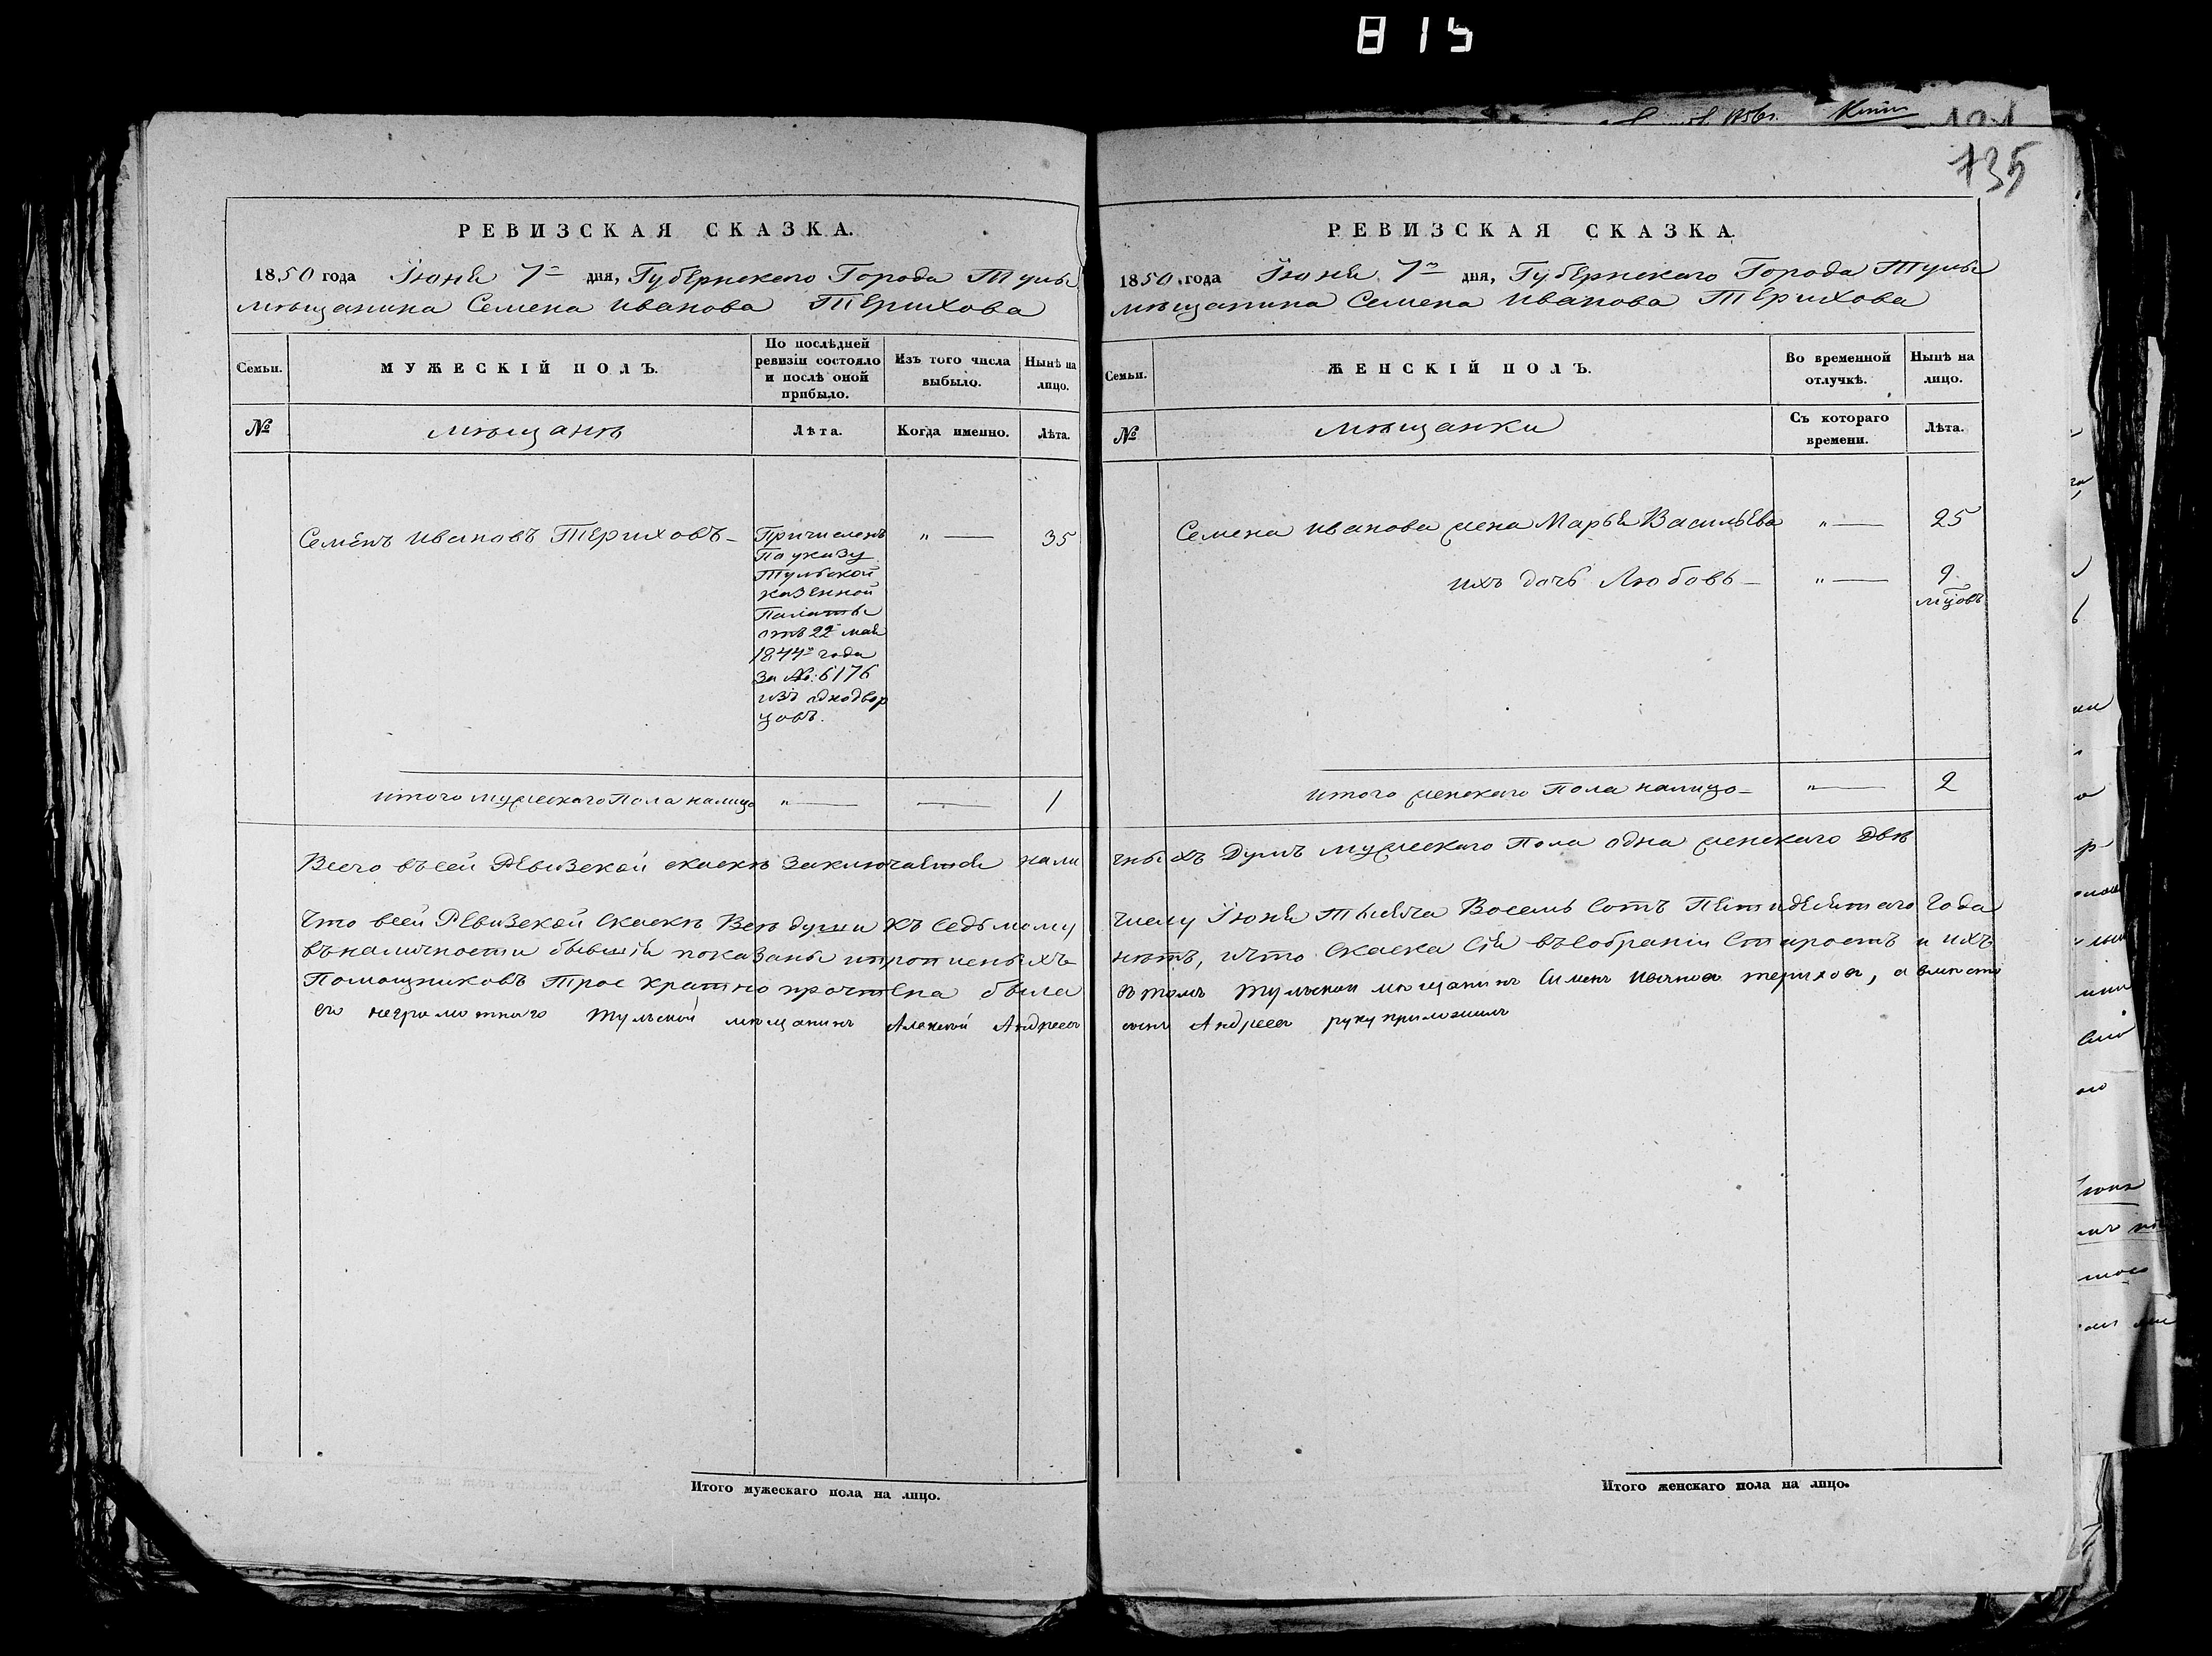 815
135
РЕВИЗСКАЯ СКАЗКА.
1850 года Іюня 7го дня, Губернскаго Города Тулы
мѣщанина Семена Иванова Терихова
Семьи.
МУЖЕСКІЙ ПОЛЪ.
По послѣдней ревизіи состояло и послѣ оной прибыло.
Изъ того числа выбыло.
Нынѣ на лицо.
№
мѣщанъ
Лѣта.
Когда именно.
Лѣта.
Семёнъ Ивановъ Териховъ — " — 35
Причисленъ
По указу
Тульской
казенной
Палаты
отъ 22 мая
1844го года
За №: 6176
изъ однодвор
цовъ.
Итого мужескаго Пола налицо " — — 1
Всего въ сей Ревизской скаскѣ заключается нали
Что всей Ревизской Скаскѣ Всѣ души Къ Седьмому
въ наличности бывшія показаны ипропиеныхъ
Помощниковъ Трое кратно прочтена была
его неграмотнаго Тульской мѣщанинъ Алексей Андреев
Итого мужескаго пола на лицо.
РЕВИЗСКАЯ СКАЗКА
1850 года Іюня 7го дня, Губернскаго Города Тулы
мѣщанина Семена Иванова Терихова
Семьи.
ЖЕНСКІЙ ПОЛЪ.
Во временной отлучкѣ.
Нынѣ на лицо.
№
мѣщанки
Съ котораго времени.
Лѣта.
Семена Иванова жена Марья Васильева " — 25
ихъ дочь Любовь — " — 9
мцовъ
Итого женскаго Пола налицо — " — 2
чныхъ Душъ мужескаго Пола одна женскаго Двѣ
числу Іюня тысяча Восемь Сотъ Пятидесятаго Года
нѣтъ, ичто Скаска Сія въ Собраніи Старостъ и ихъ
въ томъ Тульской мѣщанинъ Симен Иванов терихов, а вместо
сынъ Андреев руку приложилъ
Итого женскаго пола на лицо.